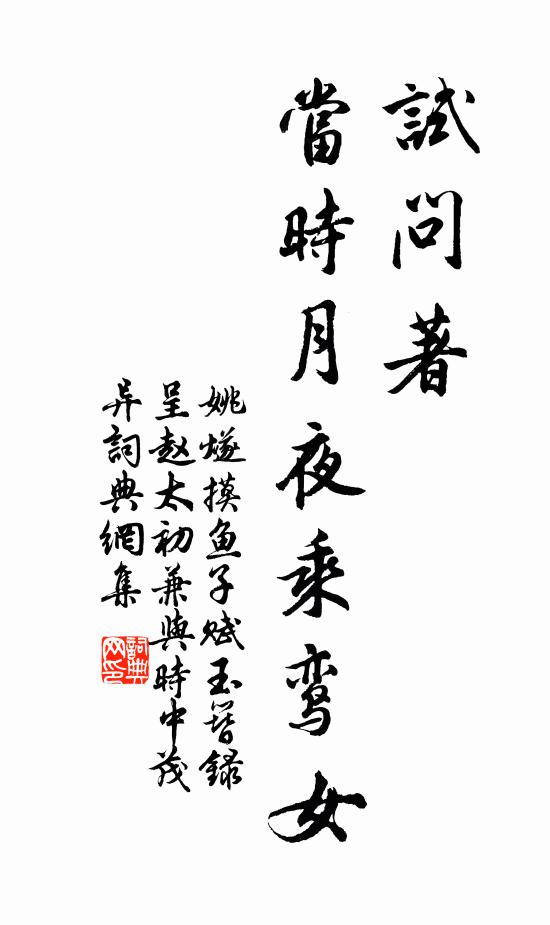 試問著
當時月夜乘鸾女
姚燧摸鱼子赋玉簪録
呈赵太初兼與時中茂
异詞典網集
詞典
网印